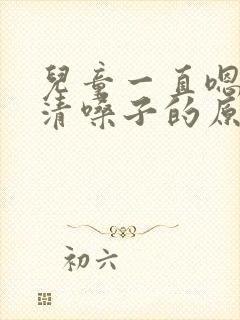 兒童一直嗯
清嗓子的原
初六